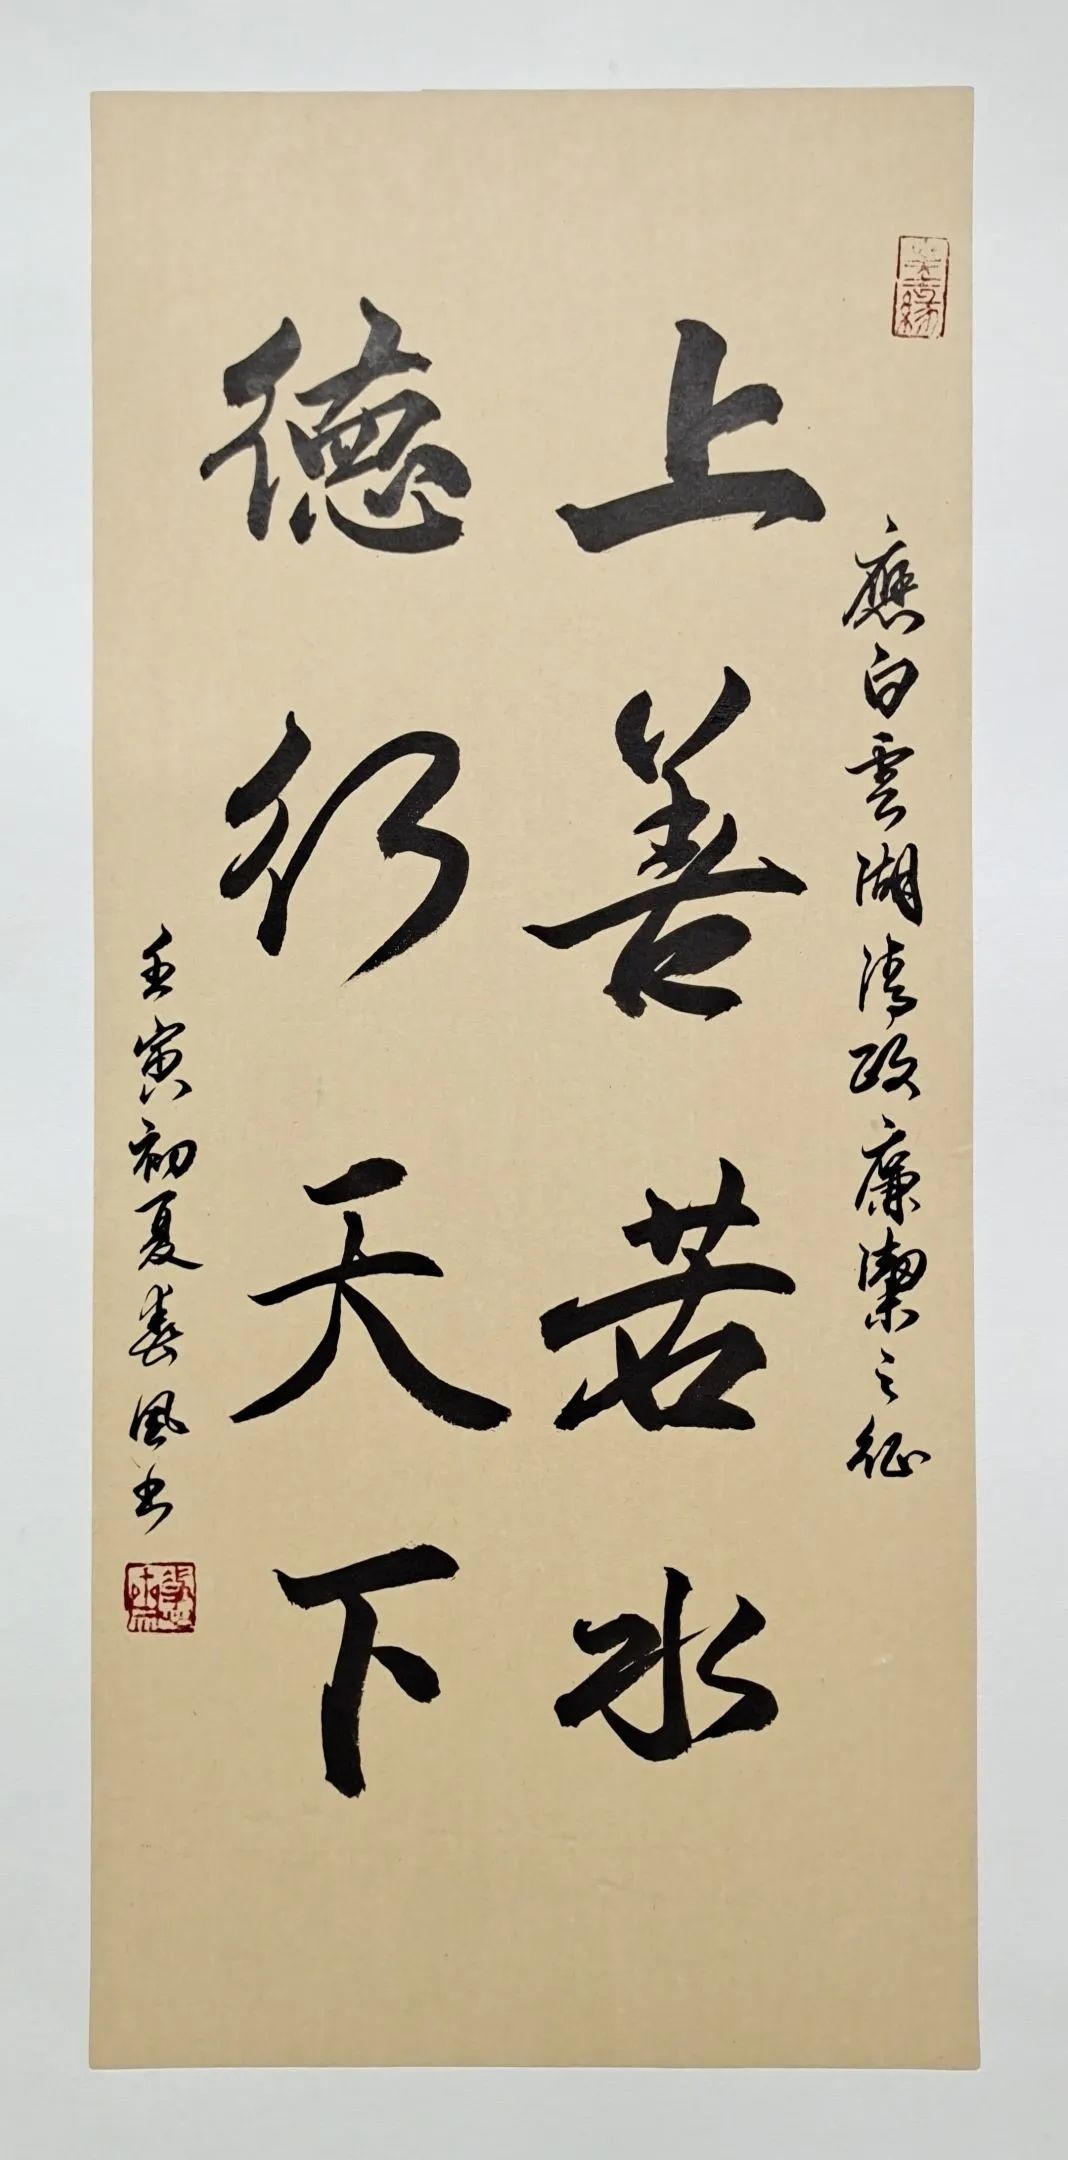 應白雲湖清政廉潔之征
上善若水
德行天下
壬寅初夏春風书